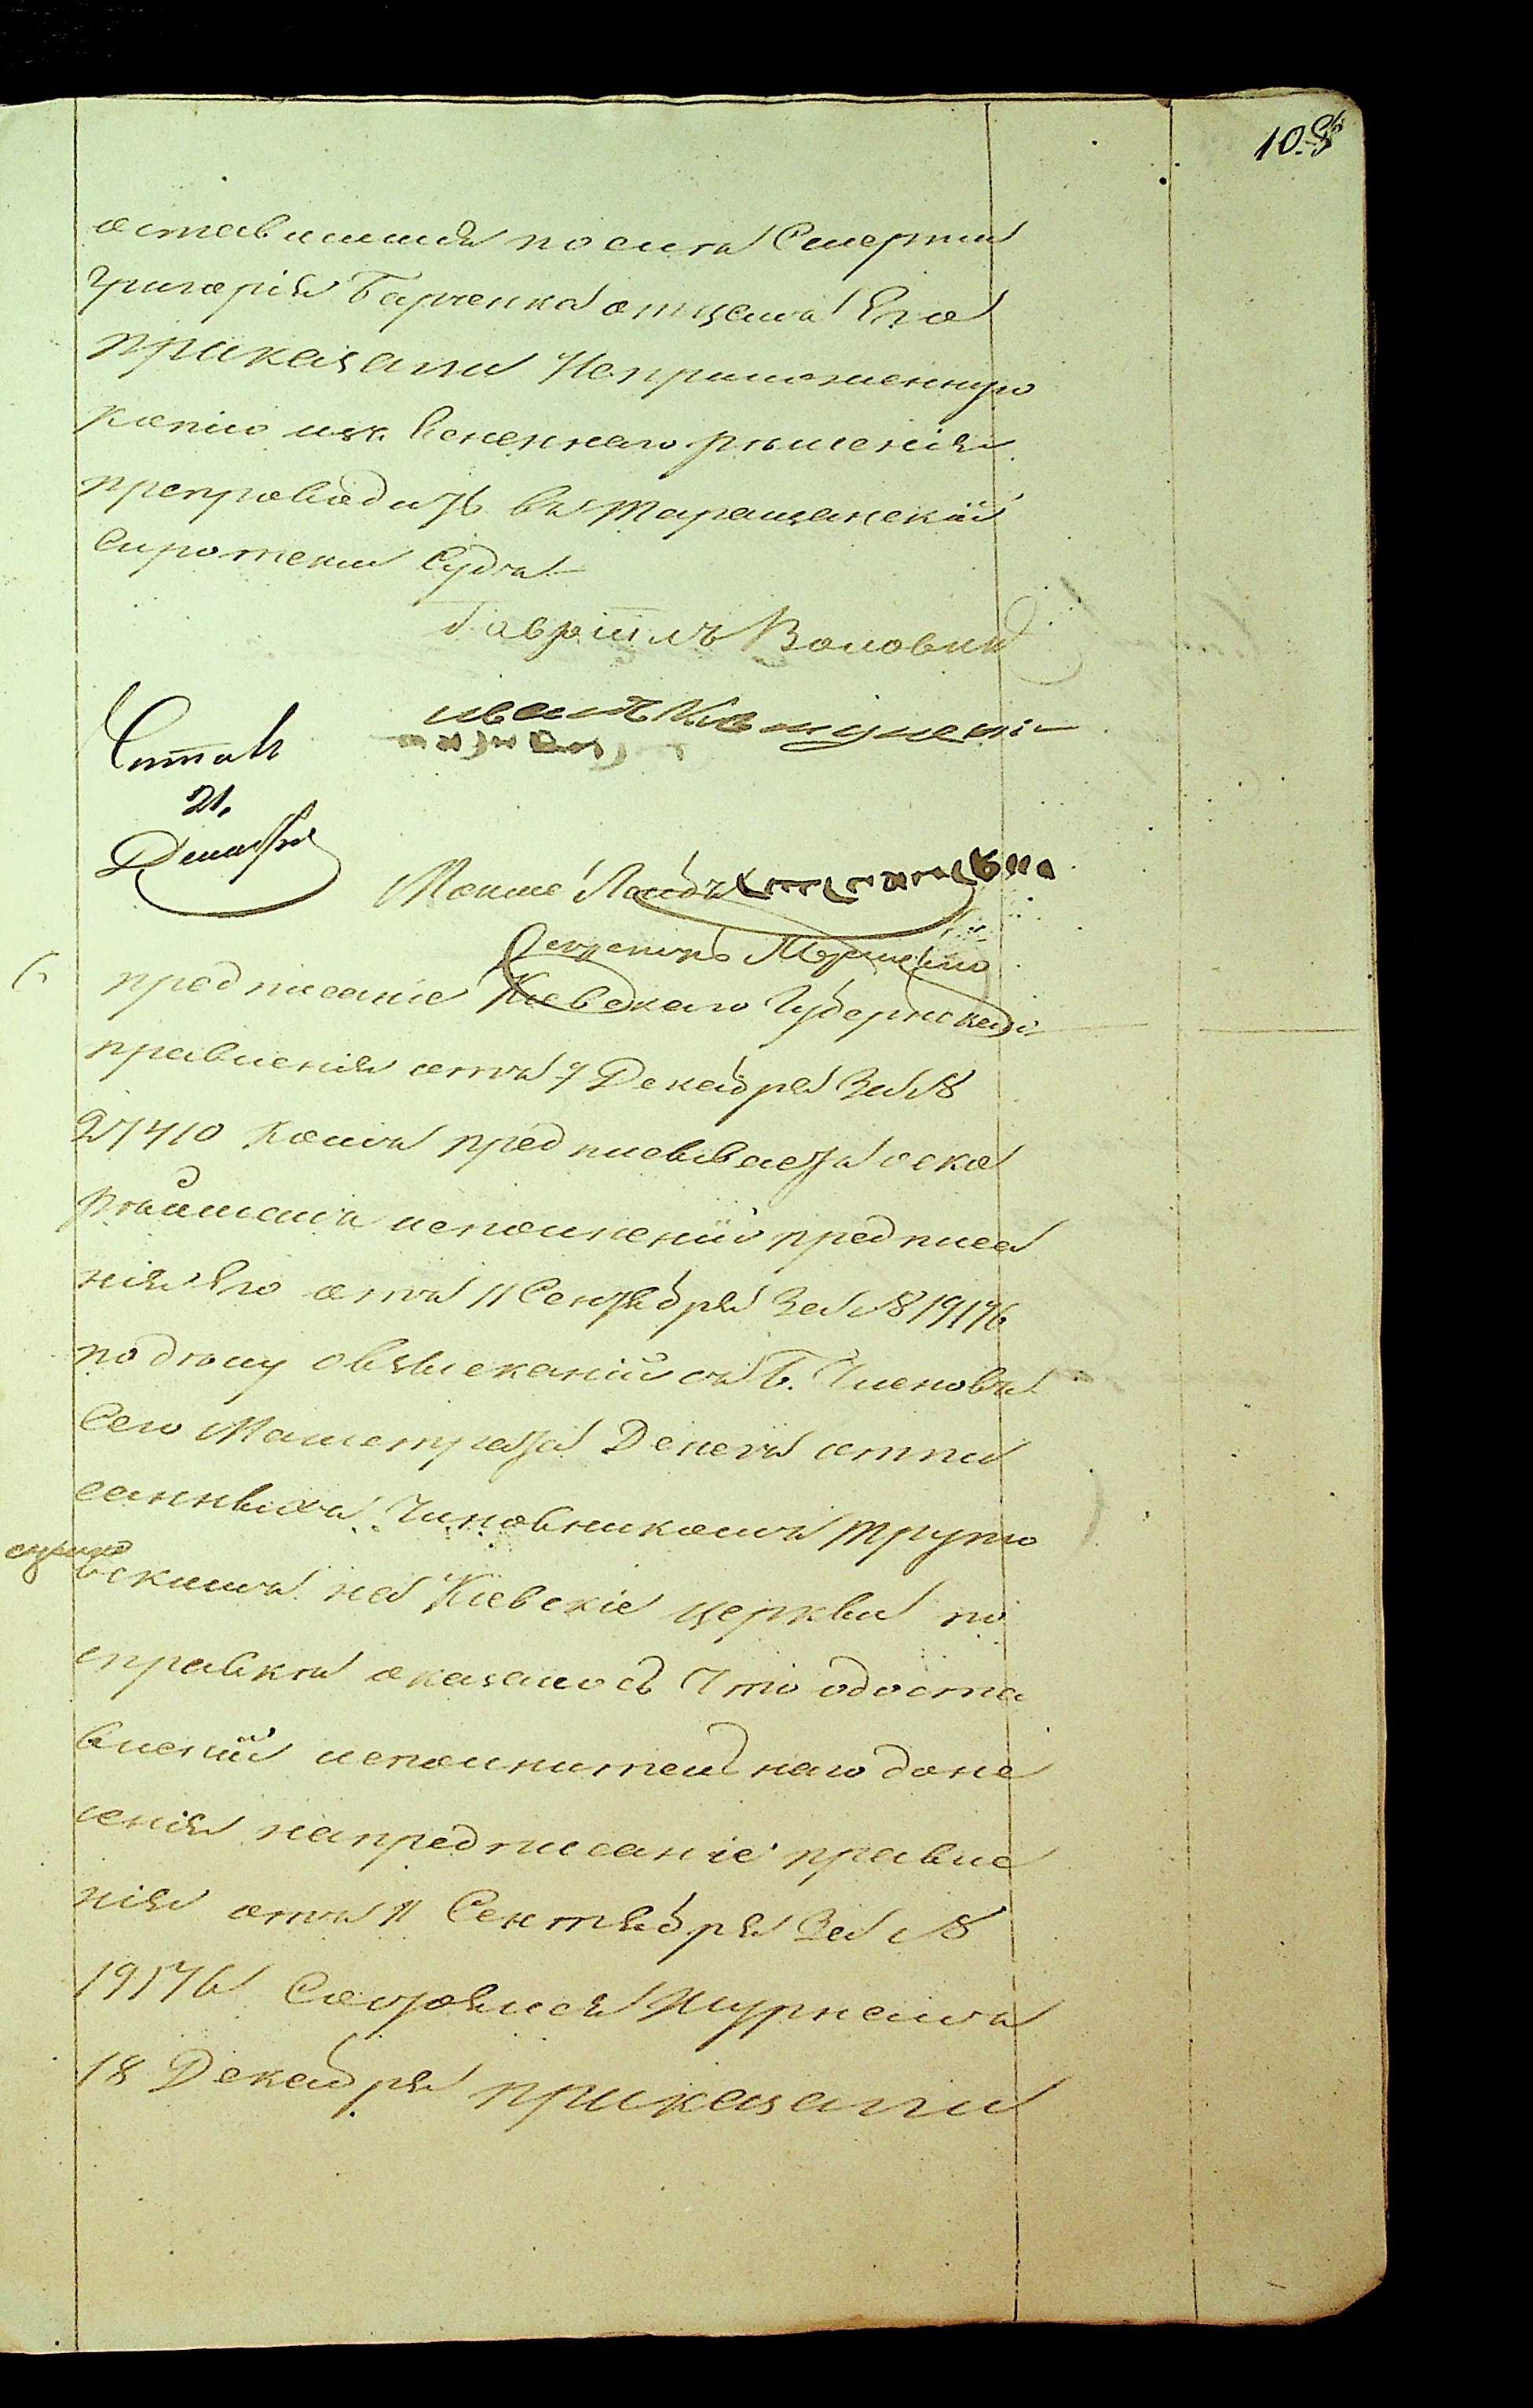 108
оставшимся после Смерти
Григорія Барченка отцемъ Его
приказали Неприложенную
копію изъ
препроводить въ Таращанскій
Сиротскій Судъ
Гавріилъ Воловик
иванъ
Читалъ
21.
Декабря
Мошке
Секретарь
предписаніе Кіевскаго Губернскаго
правленія отъ 7 Декабря За №
27410 коимъ предписываетъ оско
рѣйшемъ исполненіи предписа
нія Его отъ 11 Сентября За № 19176
по дѣлу овзысканіи съ Б. Членовъ
Сего Магистрата Денегъ отпи
санныхъ Чиновникомъ Труто
вскимъ на Кіевскіе церкви по
справкѣ оказалось Что одоста
вленіи исполнительнаго доне
сенія напредписаніе правле
нія отъ 11 Сентября За №
19176 Состоялся Журналъ
18 Декабря приказали